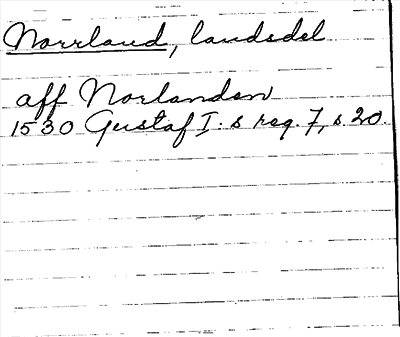 Norrland, landsdel
aff Norlanden
1530 Gustaf I. s reg. 7, s. 20.